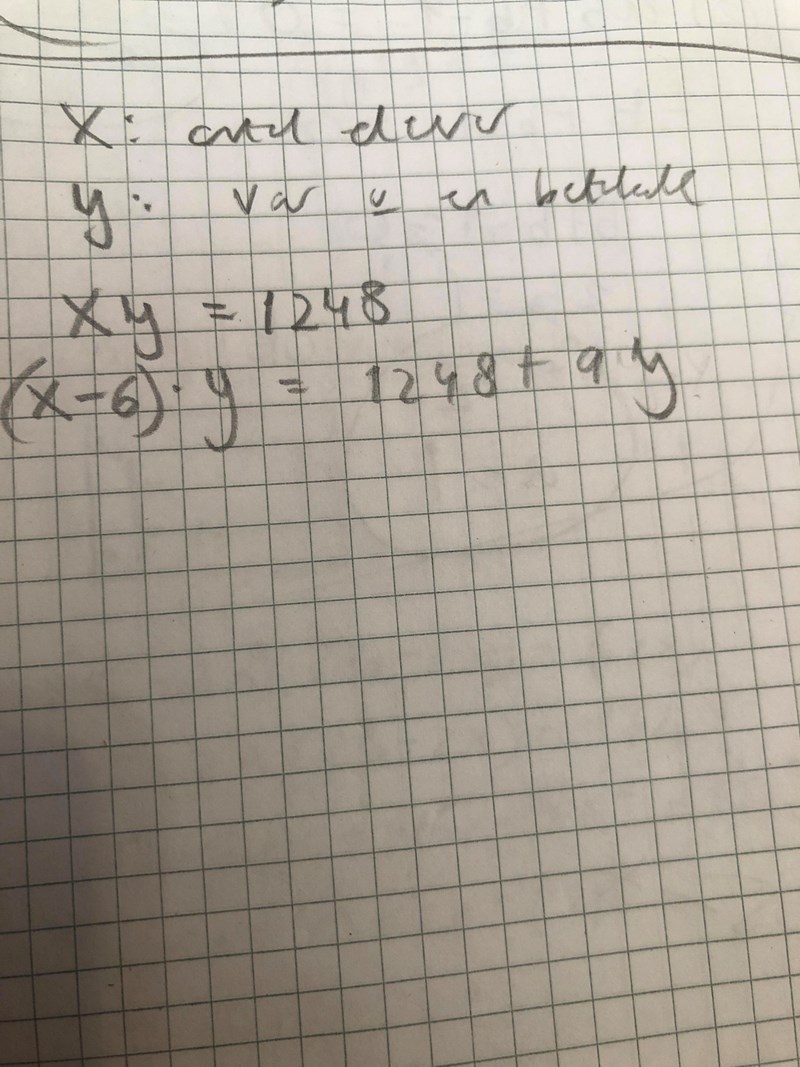 x: antal elever
y: var o en betalade
xy = 1248
(x-6)·y = 1248+9y